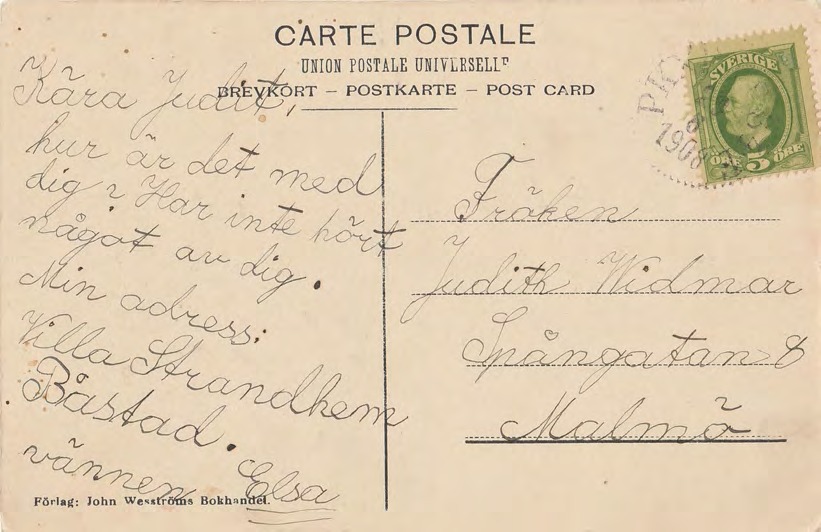 CARTE POSTALE
UNION POSTALE UNIVERSELLE
BREVKORT – POSTKARTE – POST CARD
Kära Judit,
hur är det med
dig? Har inte hört
något av dig.
Min adress:
Villa Strandhem
Båstad.
vännen Elsa
Förlag: John Wesströms Bokhandel.
SVERIGE
ÖRE 5 ÖRE
1908
Fröken
Judith Widmar
Spångatan 8
Malmö